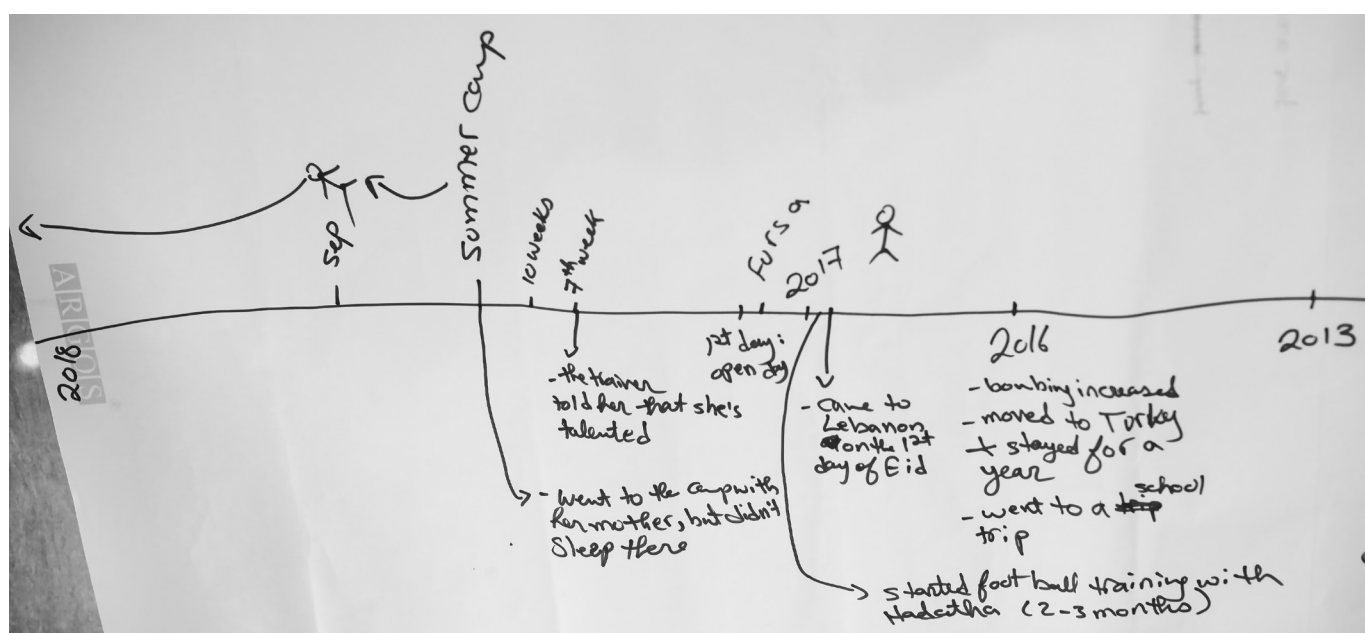 Summer Camp
Sep
10 weeks
7th week
Fursa
2017
2018
ARGOS
1st day:
open day
2016
2013
- the trainer
told her that she's
talented
- came to
Lebanon
on the 1st
day of Eid
- bombing increased
- moved to Turkey
+ stayed for a
year
- went to a school
trip
- went to the camp with
her mother, but didn't
sleep there
started football training with
Hadatha (2-3 months)